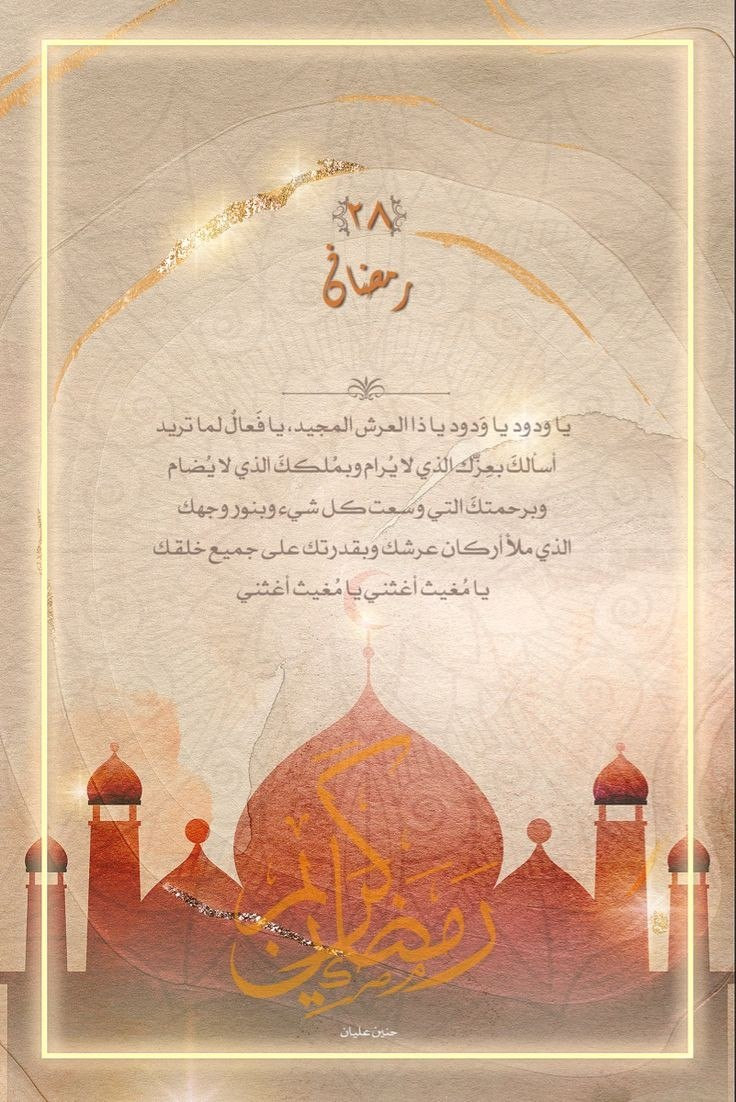 ٢٨
رمضان
يا وَدود يا وَدود يا ذا العرش المجيد، يا فَعالُ لما تريد
أسألكَ بعِزّك الذي لا يُرام وبمُلككَ الذي لا يُضام
وبرحمتكَ التي وسعت كل شيء وبنور وجهك
الذي ملأ أركان عرشك وبقدرتك على جميع خلقك
يا مُغيث أغثني يا مُغيث أغثني
رمضان كريم
حنين عليان